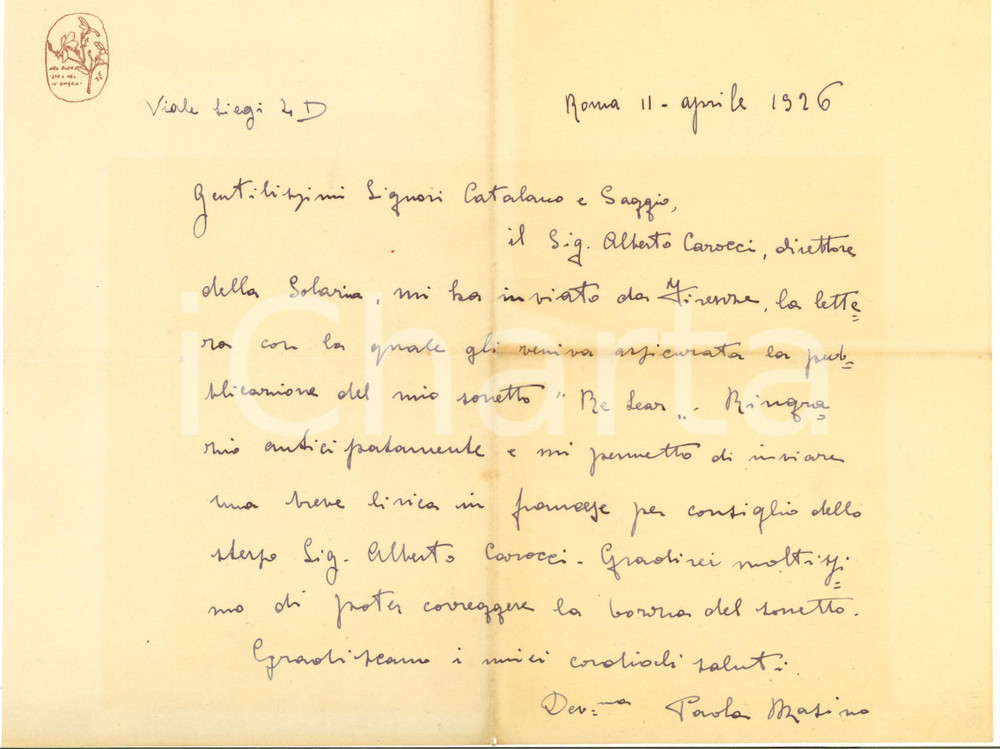 Viale Liegi 4 D
Roma 11 - aprile 1926
Gentilissimi Signori Catalano e Saggio,
il Sig. Alberto Carocci, direttore
della Solaria, mi ha inviato da Firenze, la lette=
ra con la quale gli veniva assicurata la pub=
blicazione del mio sonetto "Re Lear„. Ringra=
zio anticipatamente e mi permetto di inviare
una breve lirica in francese per consiglio dello
stesso Sig. Alberto Carocci - Gradirei moltissi=
mo di poter correggere la bozza del sonetto.
Gradiscano i miei cordiali saluti.
Dev=ma Paola Masino
iCharta